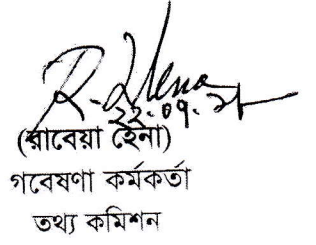 R. Hena
২২.০৭.২১
(রাবেয়া হেনা)
গবেষণা কর্মকর্তা
তথ্য কমিশন